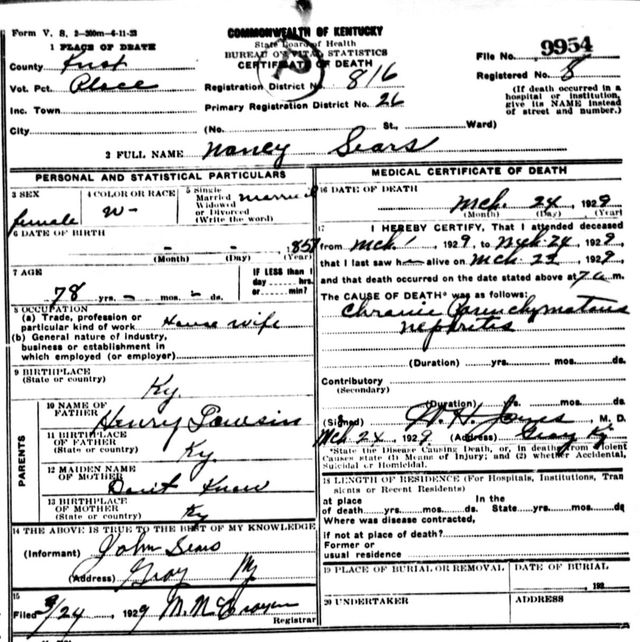 Form V. S. 2-300m-6-11-23
COMMONWEALTH OF KENTUCKY
State Board of Health
BUREAU OF VITAL STATISTICS
CERTIFICATE OF DEATH
1 PLACE OF DEATH
County
Vot. Pct. Place
Inc. Town
City
Registration District No. 816
Primary Registration District No. 26
(No. St., Ward)
File No. 9954
Registered No. 8
(If death occurred in a
hospital or institution,
give its NAME instead
of street and number.)
2 FULL NAME Nancy Sears
PERSONAL AND STATISTICAL PARTICULARS
3 SEX
female
4 COLOR OR RACE
W-
5 Single
Married
Widowed
or Divorced
(Write the word)
married
6 DATE OF BIRTH
- - 1851
(Month) (Day) (Year)
7 AGE
78 yrs. - mos. - ds.
IF LESS than 1
day......hrs.
or......min.?
8 OCCUPATION
(a) Trade, profession or
particular kind of work House wife
(b) General nature of industry,
business or establishment in
which employed (or employer)
9 BIRTHPLACE
(State or country)
Ky.
PARENTS
10 NAME OF
FATHER
Henry
11 BIRTHPLACE
OF FATHER
(State or country)
Ky
12 MAIDEN NAME
OF MOTHER
Don't Know
13 BIRTHPLACE
OF MOTHER
(State or country)
Ky
14 THE ABOVE IS TRUE TO THE BEST OF MY KNOWLEDGE
(Informant) John Sears
(Address) Gray Ky
15
Filed 3/24 1929
Registrar
MEDICAL CERTIFICATE OF DEATH
16 DATE OF DEATH
Mch. 24 1929
(Month) (Day) (Year)
17 I HEREBY CERTIFY, That I attended deceased
from Mch 1 1929, to Mch 24 1929,
that I last saw h- alive on Mch 23 1929
and that death occurred on the date stated above at 7 a m.
The CAUSE OF DEATH* was as follows:
Chronic Parenchymatous
Nephrites
(Duration) yrs. mos. ds.
Contributory
(Secondary)
(Duration) yrs. mos. ds.
(Signed) W. H. Jones M. D.
Mch 24 1929 (Address) Gray Ky
*State the Disease Causing Death, or, in deaths from Violent
Causes state (1) Means of Injury; and (2) whether Accidental,
Suicidal or Homicidal.
18 LENGTH OF RESIDENCE (For Hospitals, Institutions, Tran
sients or Recent Residents)
at place
of death....yrs.....mos.....ds.
In the
State....yrs.....mos.....ds.
Where was disease contracted,
if not at place of death?
Former or
usual residence
19 PLACE OF BURIAL OR REMOVAL
DATE OF BURIAL
192
20 UNDERTAKER
ADDRESS